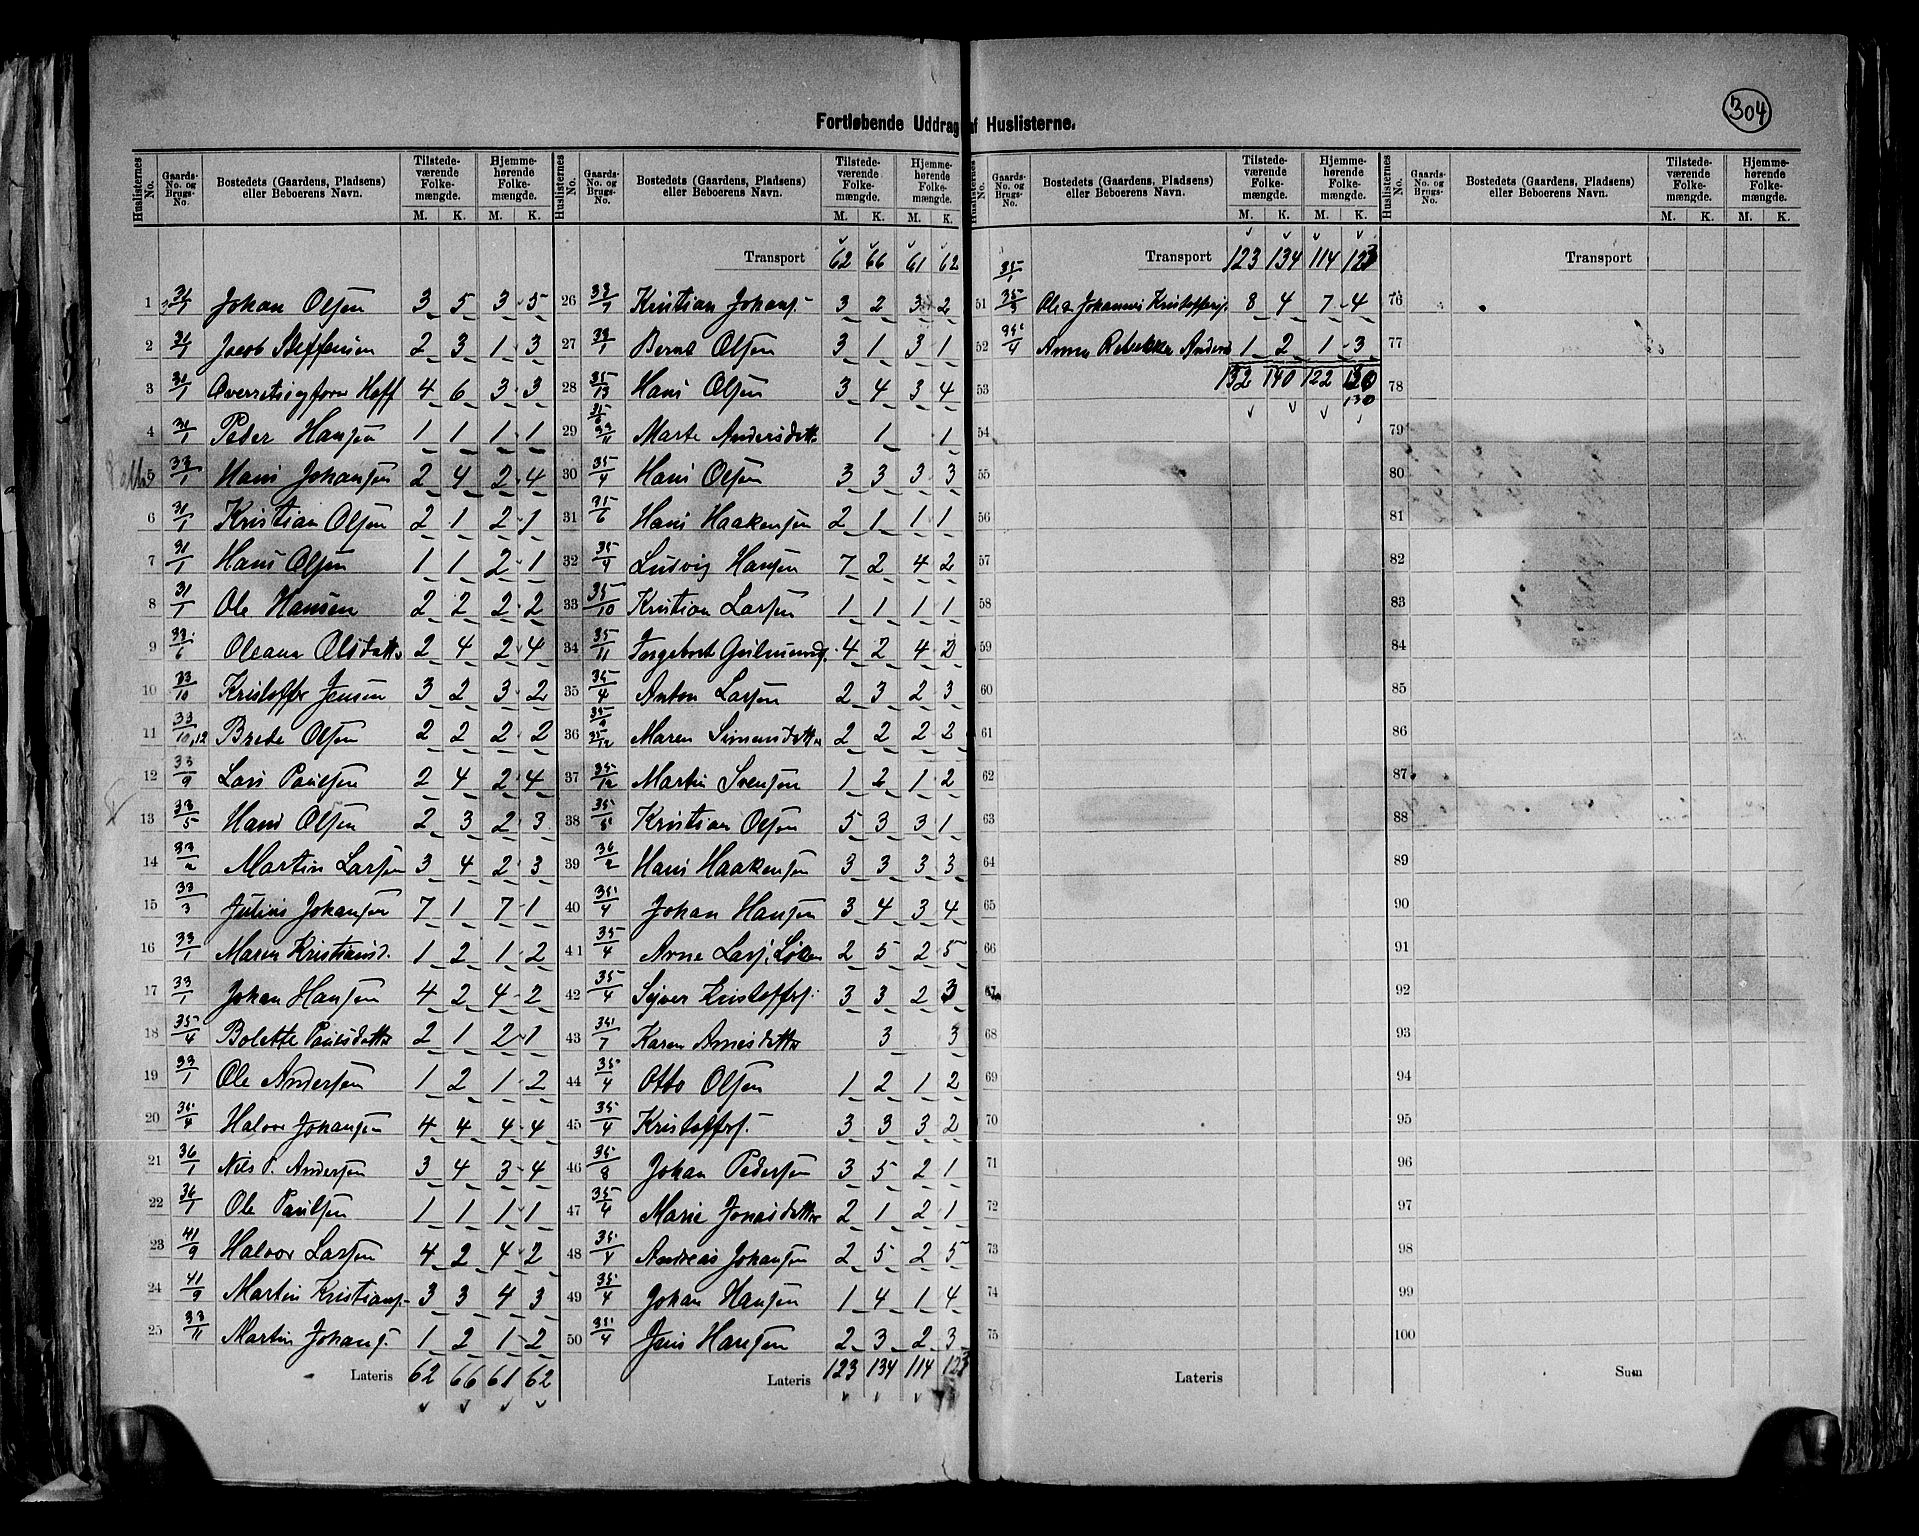 304
Fortløbende Uddrag af Huslisterne.
Huslisternes No. Gaards-No. og Brugs-No. Bostedets (Gaardens, Pladsens) eller Beboerens Navn. Tilstedeværende Folkemængde. M. K. Hjemmehørende Folkemængde. M. K.
1 31/1 Johan Olsen 3 5 3 5
2 31/1 Jacob Steffensen 2 3 1 3
3 31/1 Hoff 4 6 3 3
4 31/1 Peder Hansen 1 1 1 1
5 33/1 Hans Johansen 2 4 2 4
6 31/1 Kristian Olsen 2 1 2 1
7 31/1 Hans Olsen 1 1 2 1
8 31/1 Ole Hansen 2 2 2 2
9 33/6 Oleana Olsdatter 2 4 2 4
10 33/10 Kristoffer Jensen 3 2 3 2
11 33/10,12 Brede Olsen 2 2 2 2
12 33/9 Lars Paulsen 2 4 2 4
13 33/5 Hans Olsen 2 3 2 3
14 33/2 Martin Larsen 3 4 2 3
15 33/3 Julius Johansen 7 1 7 1
16 33/1 Maren Kristiansd. 1 2 1 2
17 33/1 Johan Hansen 4 2 4 2
18 35/4 Bolette Paulsdatter 2 1 2 1
19 33/1 Ole Andersen 1 2 1 2
20 35/4 Halvor Johansen 4 4 4 4
21 36/1 Nils P. Andersen 3 4 3 4
22 36/1 Ole Paulsen 1 1 1 1
23 41/9 Halvor Larsen 4 2 4 2
24 41/9 Martin Kristians. 3 3 4 3
25 33/11 Martin Johans. 1 2 1 2
Lateris 62 66 61 62
Huslisternes No. Gaards-No. og Brugs-No. Bostedets (Gaardens, Pladsens) eller Beboerens Navn. Tilstedeværende Folkemængde. M. K. Hjemmehørende Folkemængde. M. K.
Transport 62 66 61 62
26 33/7 Kristian Johans. 3 2 3 2
27 33/1 Bernt Olsen 3 1 3 1
28 35/13 Hans Olsen 3 4 3 4
29 33/11 Marte Andersdatter 1 1
30 35/4 Hans Olsen 3 3 3 3
31 35/6 Hans Haakensen 2 1 1 1
32 35/4 Ludvig Hansen 7 2 4 2
33 35/10 Kristian Larsen 1 1 1 1
34 35/11 4 2 4 2
35 35/4 Anton Larsen 2 3 2 3
36 35/12 Maren Simensdatter 2 2 2 2
37 35/12 Martin Svensen 1 2 1 2
38 35/5 Kristian Olsen 5 3 3 1
39 36/2 Hans Haakensen 3 3 3 3
40 35/4 Johan Hansen 3 4 3 4
41 35/4 Arne Lars. Løken 2 5 2 5
42 35/4 Syver Kristoffers. 3 3 2 3
43 35/7 Karen Arnesdatter 3 3
44 35/4 Otto Olsen 1 2 1 2
45 35/4 Kristoffers. 3 3 3 2
46 35/8 Johan Pedersen 3 5 2 1
47 35/4 Marie Jonasdatter 2 1 2 1
48 35/4 Andreas Johansen 2 5 2 5
49 35/4 Johan Hansen 1 4 1 4
50 35/4 Jens Hansen 2 3 2 3
Lateris 123 134 114 123
Huslisternes No. Gaards-No. og Brugs-No. Bostedets (Gaardens, Pladsens) eller Beboerens Navn. Tilstedeværende Folkemængde. M. K. Hjemmehørende Folkemængde. M. K.
Transport 123 134 114 123
35/1
51 35/3 Ole Johannes Kristoffers. 8 4 7 4
52 35/4 Anna Rebekka Anders 1 2 1 3
53 132 140 122 130
130
54
55
56
57
58
59
60
61
62
63
64
65
66
67
68
69
70
71
72
73
74
75
Lateris
Huslisternes No. Gaards-No. og Brugs-No. Bostedets (Gaardens, Pladsens) eller Beboerens Navn. Tilstedeværende Folkemængde. M. K. Hjemmehørende Folkemængde. M. K.
Transport
76
77
78
79
80
81
82
83
84
85
86
87
88
89
90
91
92
93
94
95
96
97
98
99
100
Sum